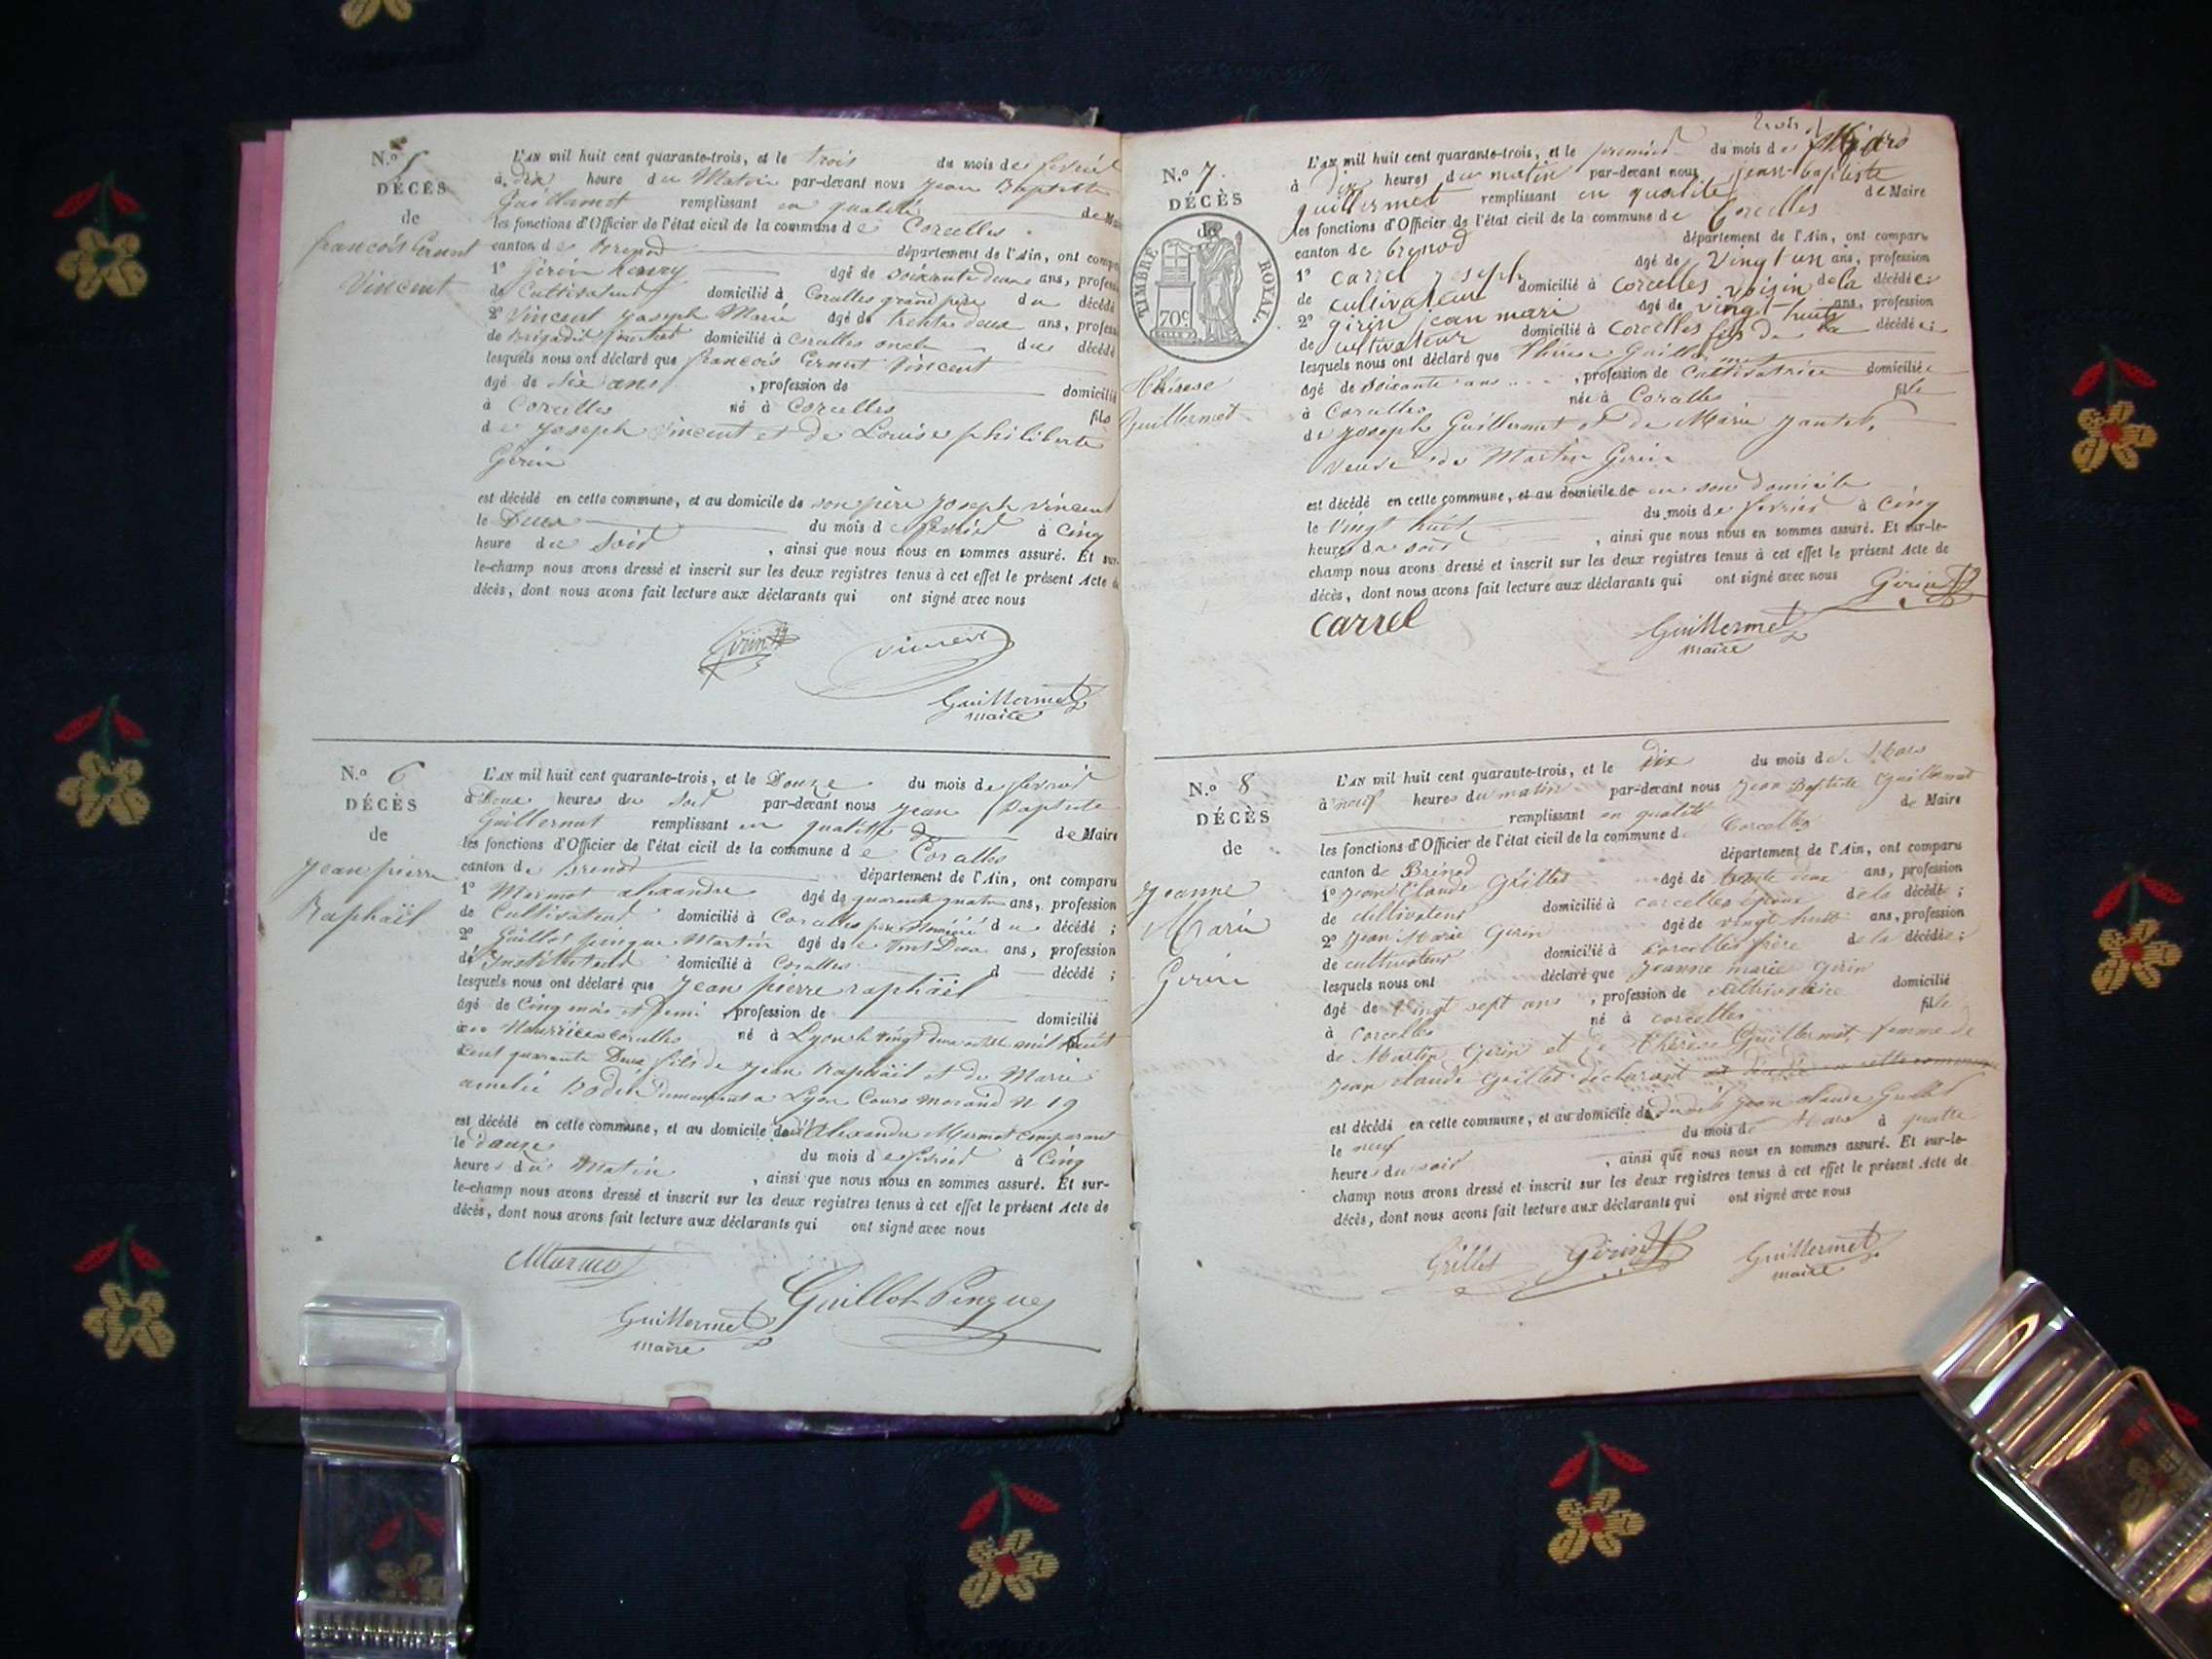 N.º 5
DÉCÈS
de
françois Ernest
Vincent
L'AN mil huit cent quarante-trois, et le trois du mois de fevrier
à dix heure du Matin par-devant nous jean Baptiste
Guillermet remplissant en qualité de Maire
les fonctions d'Officier de l'état civil de la commune de Corcelles
canton de Brenod département de l'Ain, ont comparu
1º Girin henry âgé de soixante deux ans, profession
de Cultivateur domicilié à Corcelles grand père du décédé
2º Vincent joseph Marie âgé de trente deux ans, profession
de Brigadier forestier domicilié à Corcelles oncle du décédé
lesquels nous ont déclaré que françois Ernest Vincent
âgé de six ans , profession de domicilié
à Corcelles né à Corcelles fils
de joseph vincent et de Louise philiberte
Girin
est décédé en cette commune, et au domicile de son père joseph vincent
le Deux du mois de fevrier à Cinq
heure du soir , ainsi que nous nous en sommes assuré. Et sur-
le-champ nous avons dressé et inscrit sur les deux registres tenus à cet effet le présent Acte de
décès, dont nous avons fait lecture aux déclarants qui ont signé avec nous
Girin Vincent
Guillermet
maire
N.º 6
DÉCÈS
de
jean pierre
Raphaël
L'AN mil huit cent quarante-trois, et le Douze du mois de fevrier
à Deux heures du soir par-devant nous jean Baptiste
Guillermet remplissant en qualité de Maire
les fonctions d'Officier de l'état civil de la commune de Corcelles
canton de Brenod département de l'Ain, ont comparu
1º Marmot alexandre âgé de quarante quatre ans, profession
de Cultivateur domicilié à Corcelles père du décédé ;
2º Guillot pingue Martin âgé de vint Deux ans, profession
de Instituteur domicilié à Corcelles d décédé ;
lesquels nous ont déclaré que jean pierre raphaël
âgé de Cinq mois et Demi profession de domicilié
à en Nourrice a corcelles né à Lyon le vingt deux mil huit
Cent quarante Deux fils de jean Raphaël et de Marie
amelie Bodin Demeurant a Lyon Cours morand N 19
est décédé en cette commune, et au domicile de d'Alexandre Marmot comparant
le douze du mois de fevrier à Cinq
heures du Matin , ainsi que nous nous en sommes assuré. Et sur-
le-champ nous avons dressé et inscrit sur les deux registres tenus à cet effet le présent Acte de
décès, dont nous avons fait lecture aux déclarants qui ont signé avec nous
Marmot
Guillot Pingue
Guillermet
maire
N.º 7
DÉCÈS
de
TIMBRE ROYAL.
70c
thérese
Guillermet
trois
L'AN mil huit cent quarante-trois, et le premier du mois de Mars
à Dix heures du matin par-devant nous jean-baptiste
guillermet remplissant en qualité de Maire
les fonctions d'Officier de l'état civil de la commune de Corcelles
canton de brenod département de l'Ain, ont comparu
1º carrel joseph âgé de vingt un ans, profession
de cultivateur domicilié à corcelles voisin de la décédée
2º girin jean mari âgé de vingt huit ans, profession
de cultivateur domicilié à corcelles fils de la décédée
lesquels nous ont déclaré que Thérèse Guillermet
âgé de soixante ans , profession de Cultivatrice domiciliée
à Corcelles née à Corcelles fille
de joseph Guillermet et de Marie jantet,
veuve de Martin Girin
est décédé en cette commune, et au domicile de en son domicile
le vingt huit du mois de fevrier à Cinq
heures du soir , ainsi que nous nous en sommes assuré. Et sur-le-
champ nous avons dressé et inscrit sur les deux registres tenus à cet effet le présent Acte de
décès, dont nous avons fait lecture aux déclarants qui ont signé avec nous Girin
carrel
Guillermet
maire
N.º 8
DÉCÈS
de
jeanne
Marie
Girin
L'AN mil huit cent quarante-trois, et le Dix du mois de Mars
à neuf heures du matin par-devant nous Jean Baptiste Guillermet
remplissant en qualité de Maire
les fonctions d'Officier de l'état civil de la commune d Corcelles
canton de Brénod département de l'Ain, ont comparu
1º jean Claude Grillet âgé de trente deux ans, profession
de cultivateur domicilié à corcelles époux de la décédée ;
2º jean Marie Girin âgé de vingt huit ans, profession
de cultivateur domicilié à corcelles frère de la décédée ;
lesquels nous ont déclaré que jeanne marie Girin
âgé de vingt sept ans , profession de cultivatrice domicilié
à corcelles né à corcelles fille
de Martin Girin et de thérèse Guillermet, femme de
jean claude Grillet déclarant est décédé en cette commune
est décédé en cette commune, et au domicile de dudit jean claude Grillet
le neuf du mois de Mars à quatre
heures du soir , ainsi que nous nous en sommes assuré. Et sur-le-
champ nous avons dressé et inscrit sur les deux registres tenus à cet effet le présent Acte de
décès, dont nous avons fait lecture aux déclarants qui ont signé avec nous
Grillet Girin Guillermet
maire